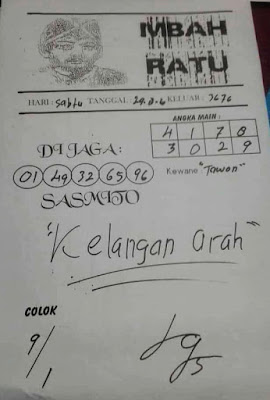 MBAH
RATU
HARI : Sabtu TANGGAL : 29-8-6 KELUAR : 7676
ANGKA MAIN :
4 1 7 8
3 0 2 9
DI JAGA :
01 49 32 65 96
Kewane "Tawon"
SASMITO
"Kelangan arah"
COLOK
9/1